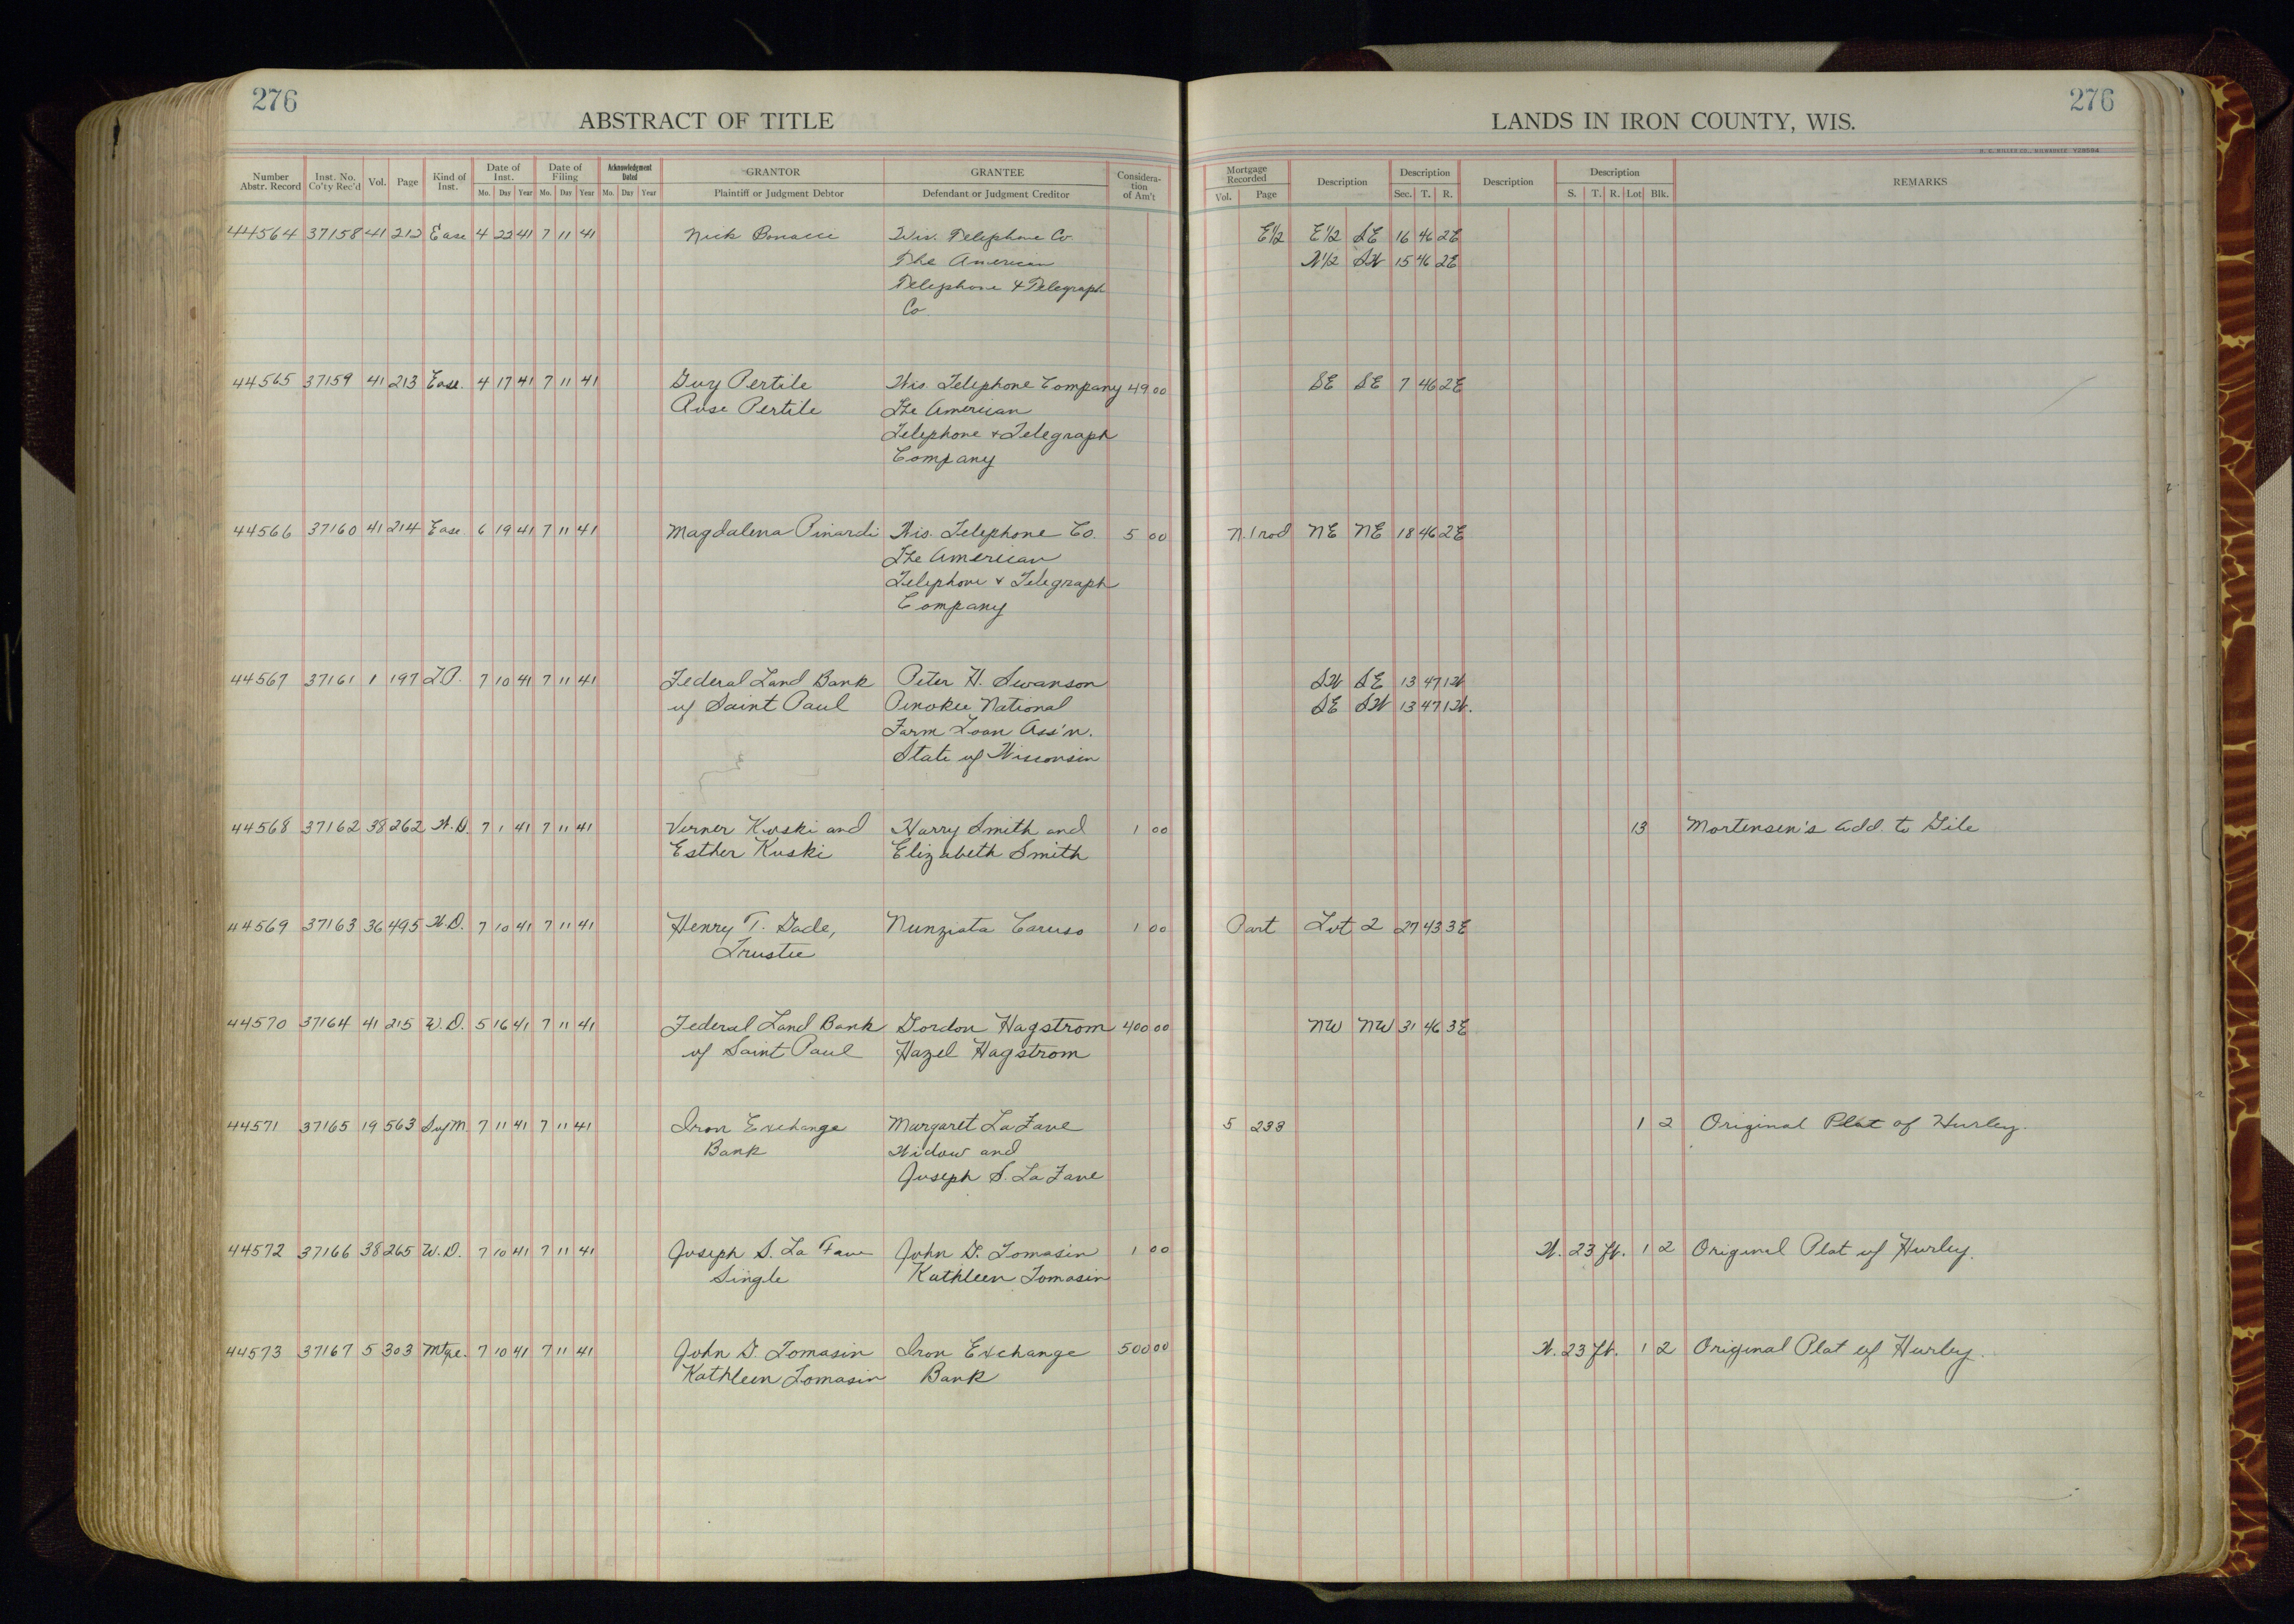 276
276
ABSTRACT OF TITLE
LANDS IN IRON COUNTY, WIS.
Number Abstr. Record Inst. No. Co'ty Rec'd Vol. Page Kind of Inst. Date of Inst. Mo. Day Year Date of Filing Mo. Day Year Acknowledgment Dated Mo. Day Year GRANTOR Plaintiff or Judgment Debtor GRANTEE Defendant or Judgment Creditor Considera-tion of Am't
Mortgage Recorded Vol. Page Description Description Sec. T. R. Description Description S. T. R. Lot Blk. REMARKS
44564 37158 41 212 Ease 4 22 41 7 11 41 Nick Bonacci Wis. Telephone Co. E1/2 E1/2 SE 16 46 2E
The American N1/2 SW 15 46 2E
Telephone & Telegraph
Co.
44565 37159 41 213 Ease. 4 17 41 7 11 41 Guy Pertile Wis. Telephone Company 49 00 SE SE 7 46 2E
Rose Pertile The American
Telephone & Telegraph
Company
44566 37160 41 214 Ease. 6 19 41 7 11 41 Magdalena Pinardi Wis. Telephone Co. 5 00 N. 1 rod NE NE 18 46 2E
The American
Telephone & Telegraph
Company
44567 37161 1 197 7 10 41 7 11 41 Federal Land Bank Peter H. Swanson SW SE 13 47 1W
of Saint Paul Penokee National SE SW 13 47 1W.
Farm Loan Ass'n.
State of Wisconsin
44568 37162 38 262 W.D. 7 1 41 7 11 41 Verner Koski and Harry Smith and 1 00 13 Mortensen's Add. to Gile
Esther Koski Elizabeth Smith
44569 37163 36 495 W.D. 7 10 41 7 11 41 Henry T. Gade, Nunziata Caruso 1 00 Part Lot 2 27 43 3E
Trustee
44570 37164 41 215 W.D. 5 16 41 7 11 41 Federal Land Bank Gordon Hagstrom 400 00 NW NW 31 46 3E
of Saint Paul Hazel Hagstrom
44571 37165 19 563 S of M 7 11 41 7 11 41 Iron Exchange Margaret LaFave 5 233 1 2 Original Plat of Hurley.
Bank Widow and
Joseph S. LaFave
44572 37166 38 265 W.D. 7 10 41 7 11 41 Joseph S. La Fave John G. Tomasin 1 00 W. 23 ft. 1 2 Original Plat of Hurley.
Single Kathleen Tomasin
44573 37167 5 303 Mtge. 7 10 41 7 11 41 John G. Tomasin Iron Exchange 500 00 W. 23 ft. 1 2 Original Plat of Hurley.
Kathleen Tomasin Bank